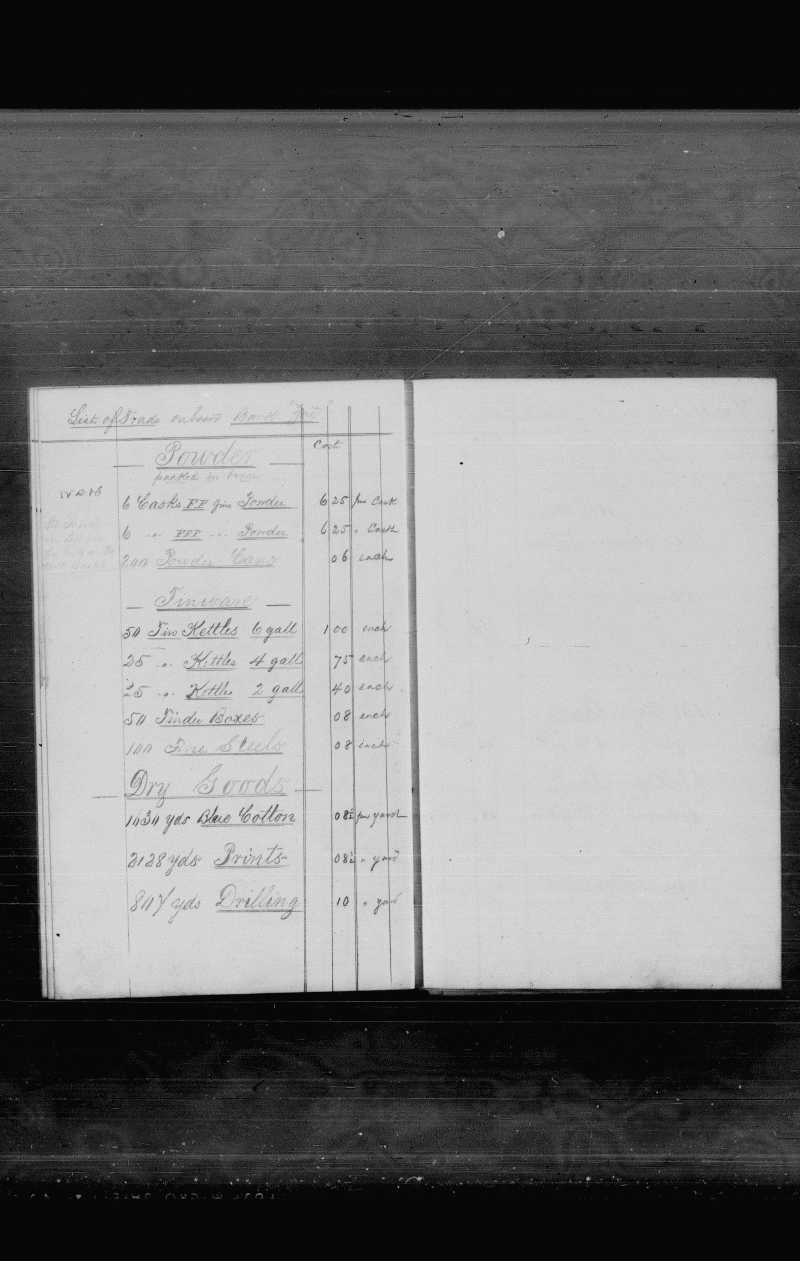 List of Trade onboard Bark
Cost
Powder
packed in boxes
6 Casks FF fine Powder 6 25 per Cask
6 " FFF " Powder 6 25 " Cask
200 Powder Cans 06 each
Tinware
50 Tin Kettles 6 gall 1 00 each
25 " Kettles 4 gall 75 each
25 " Kettles 2 gall 40 each
50 Tinder Boxes 08 each
100 Fire Steels 08 each
Dry Goods
1030 yds Blue Cotton 08½ per yard
2128 yds Prints 08½ " yard
yds Drilling 10 " yard